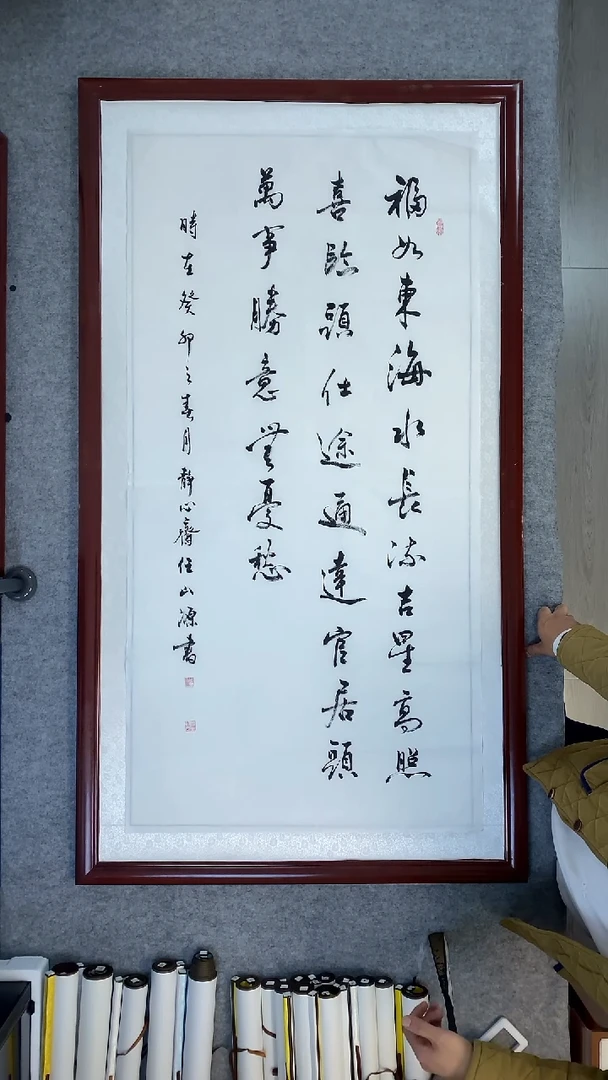 福如東海水長流吉星高照
喜臨頭仕途通達官居頭
萬事勝意無憂愁
時在癸卯之春月靜心齋任山源書